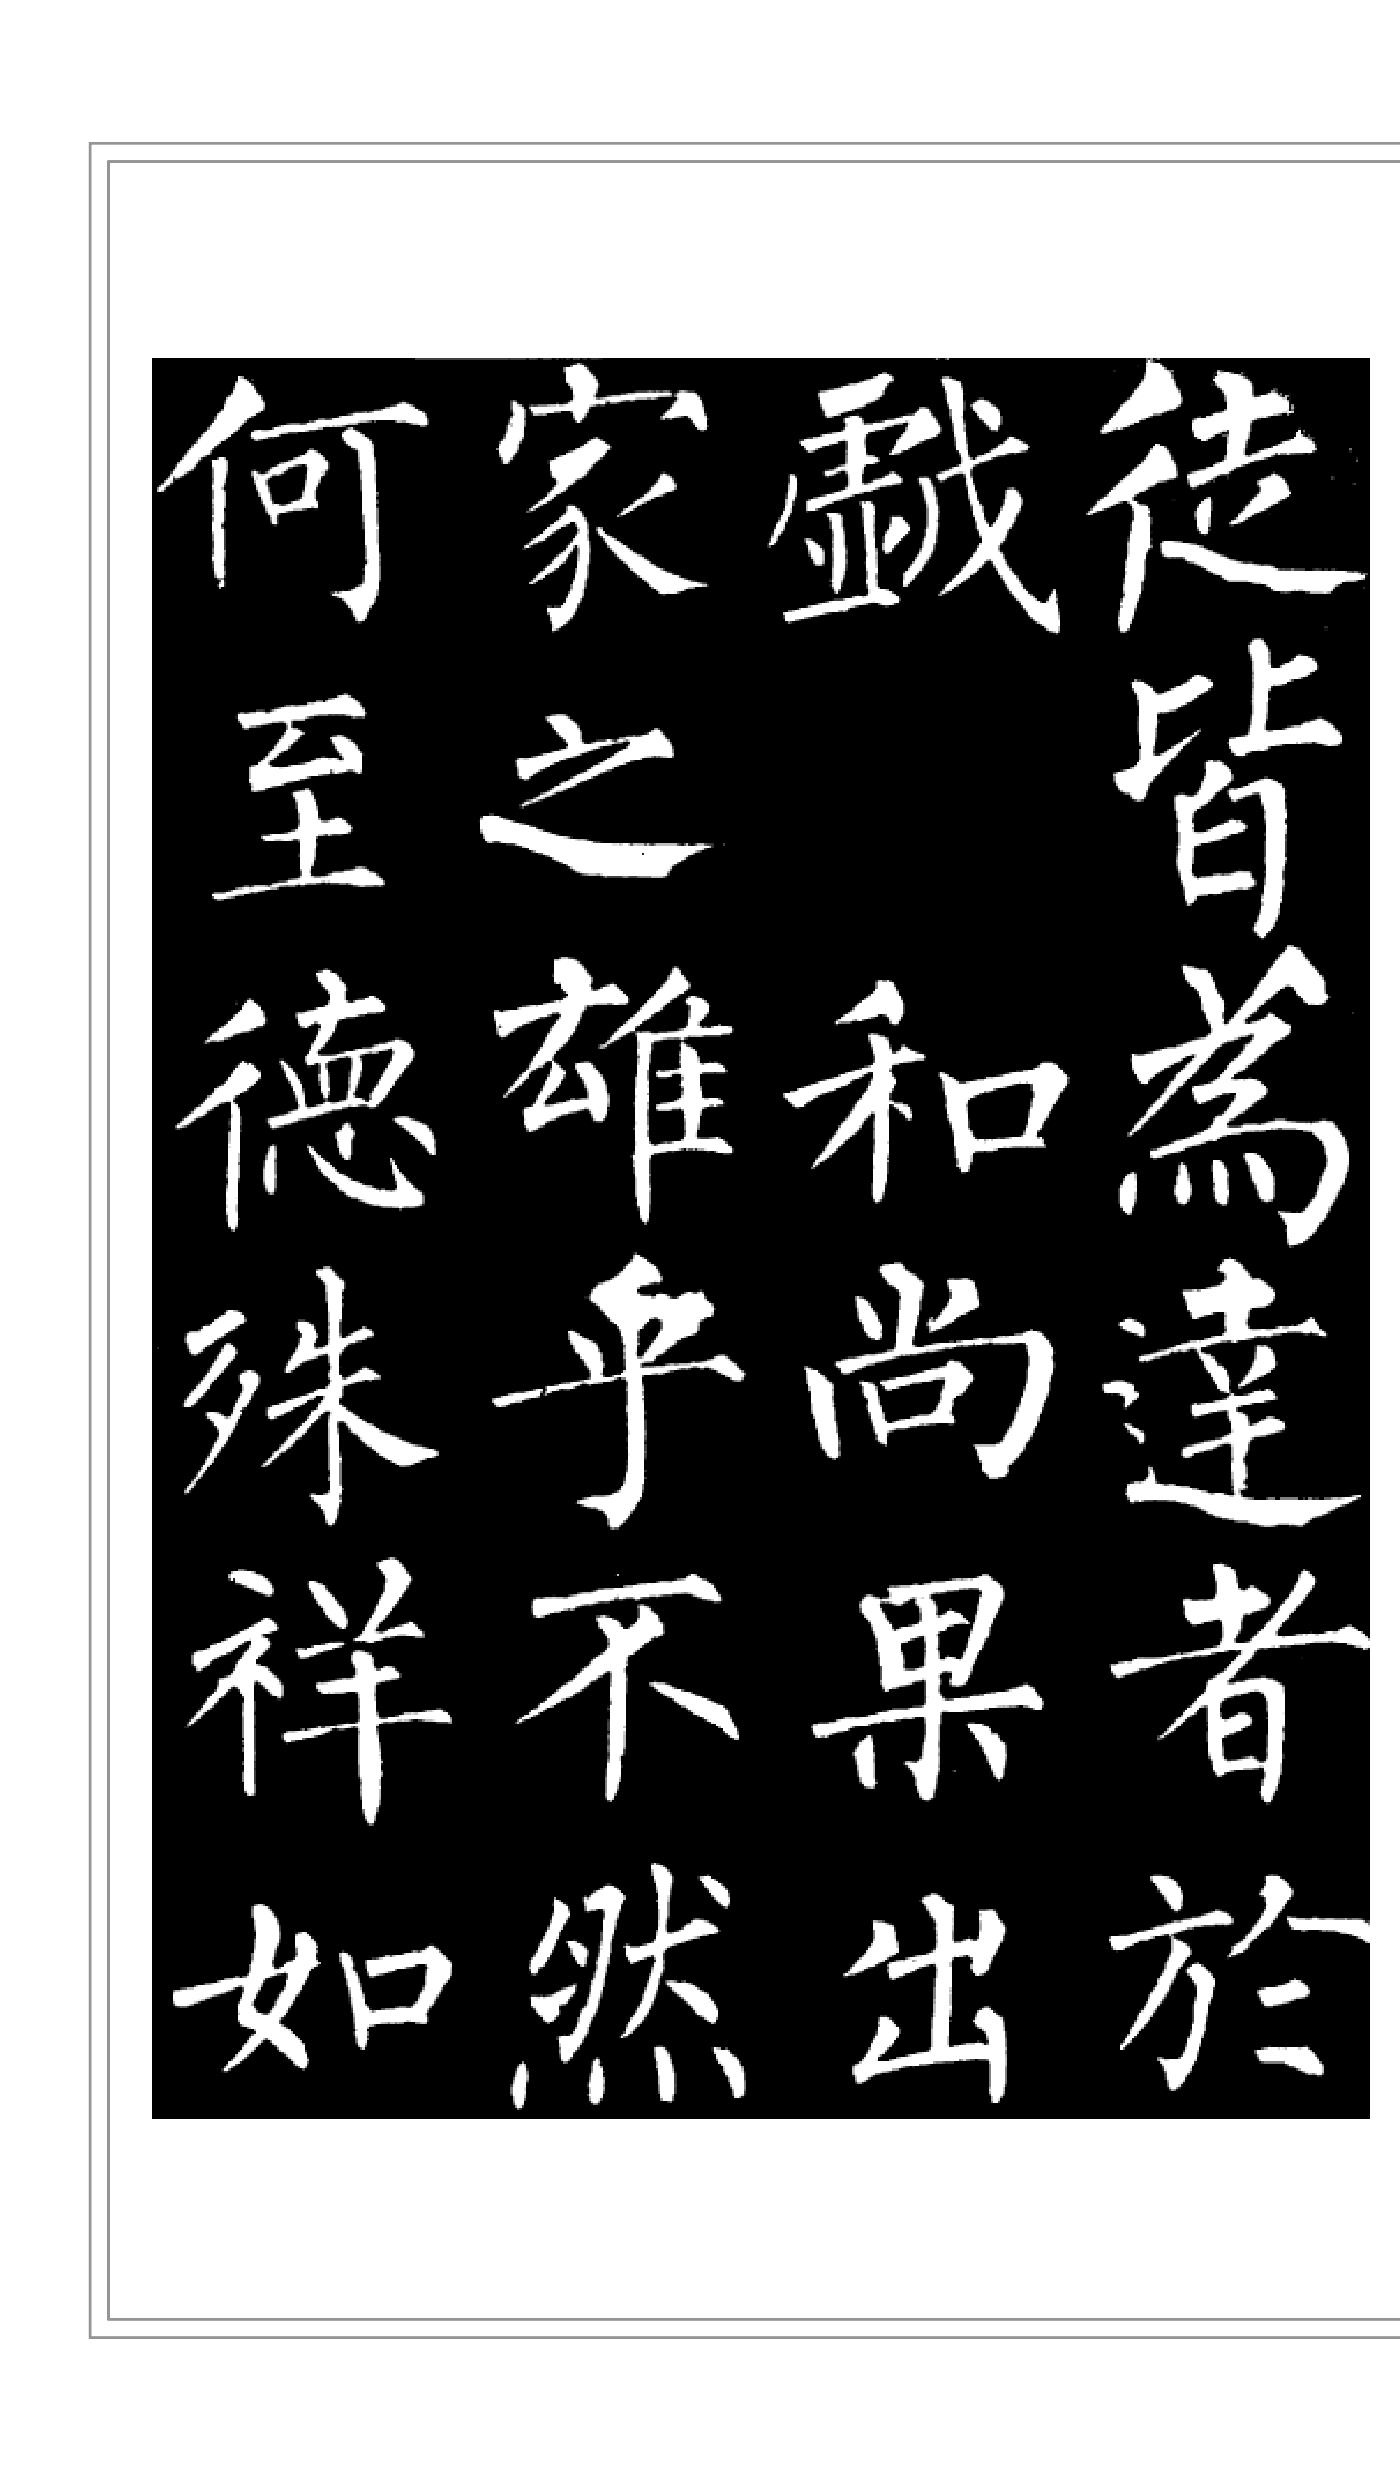 徒皆為達者於
戱和尚果出
家之雄乎不然
何至德殊祥如